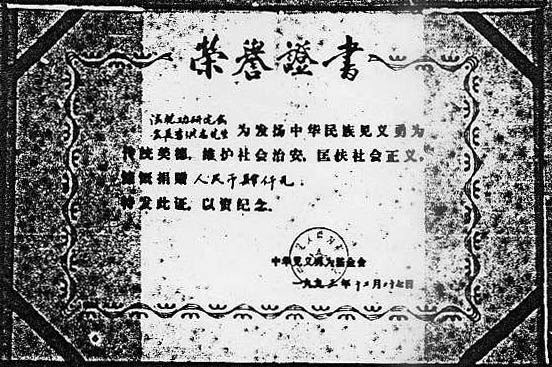 榮譽證書
法轮功研究会
会长李洪志先生 为发扬中华民族见义勇为
传统美德，维护社会治安，匡扶社会正义，
慷慨捐赠 人民币肆仟元，
特发此证，以资纪念。
中华见义勇为基金会
一九九三年十二月廿七日